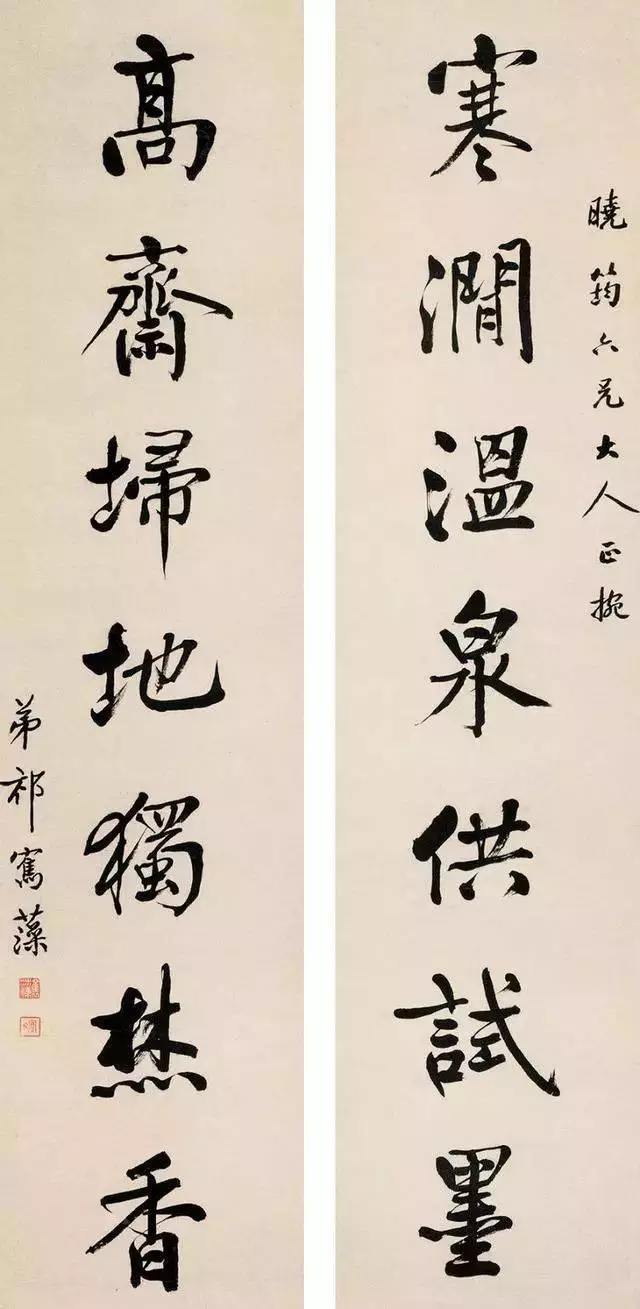 曉筠六兄大人正捥
寒澗溫泉供試墨
髙齋埽地獨焚香
弟祁寯藻